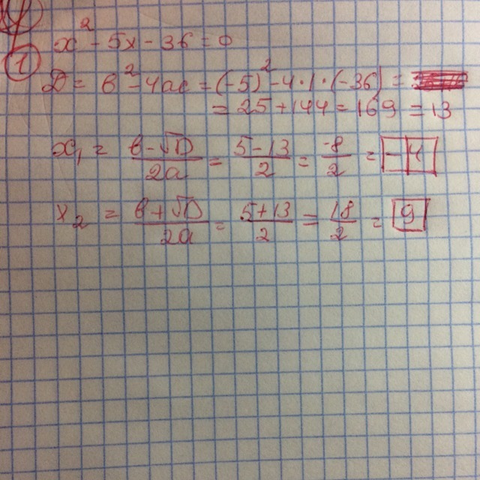 x² - 5x - 36 = 0
1
D = b² - 4ac = (-5)² - 4·1·(-36) =
= 25 + 144 = 169 = 13
x₁ = (b - √D)/2a = (5 - 13)/2 = -8/2 = -4
x₂ = (b + √D)/2a = (5 + 13)/2 = 18/2 = 9